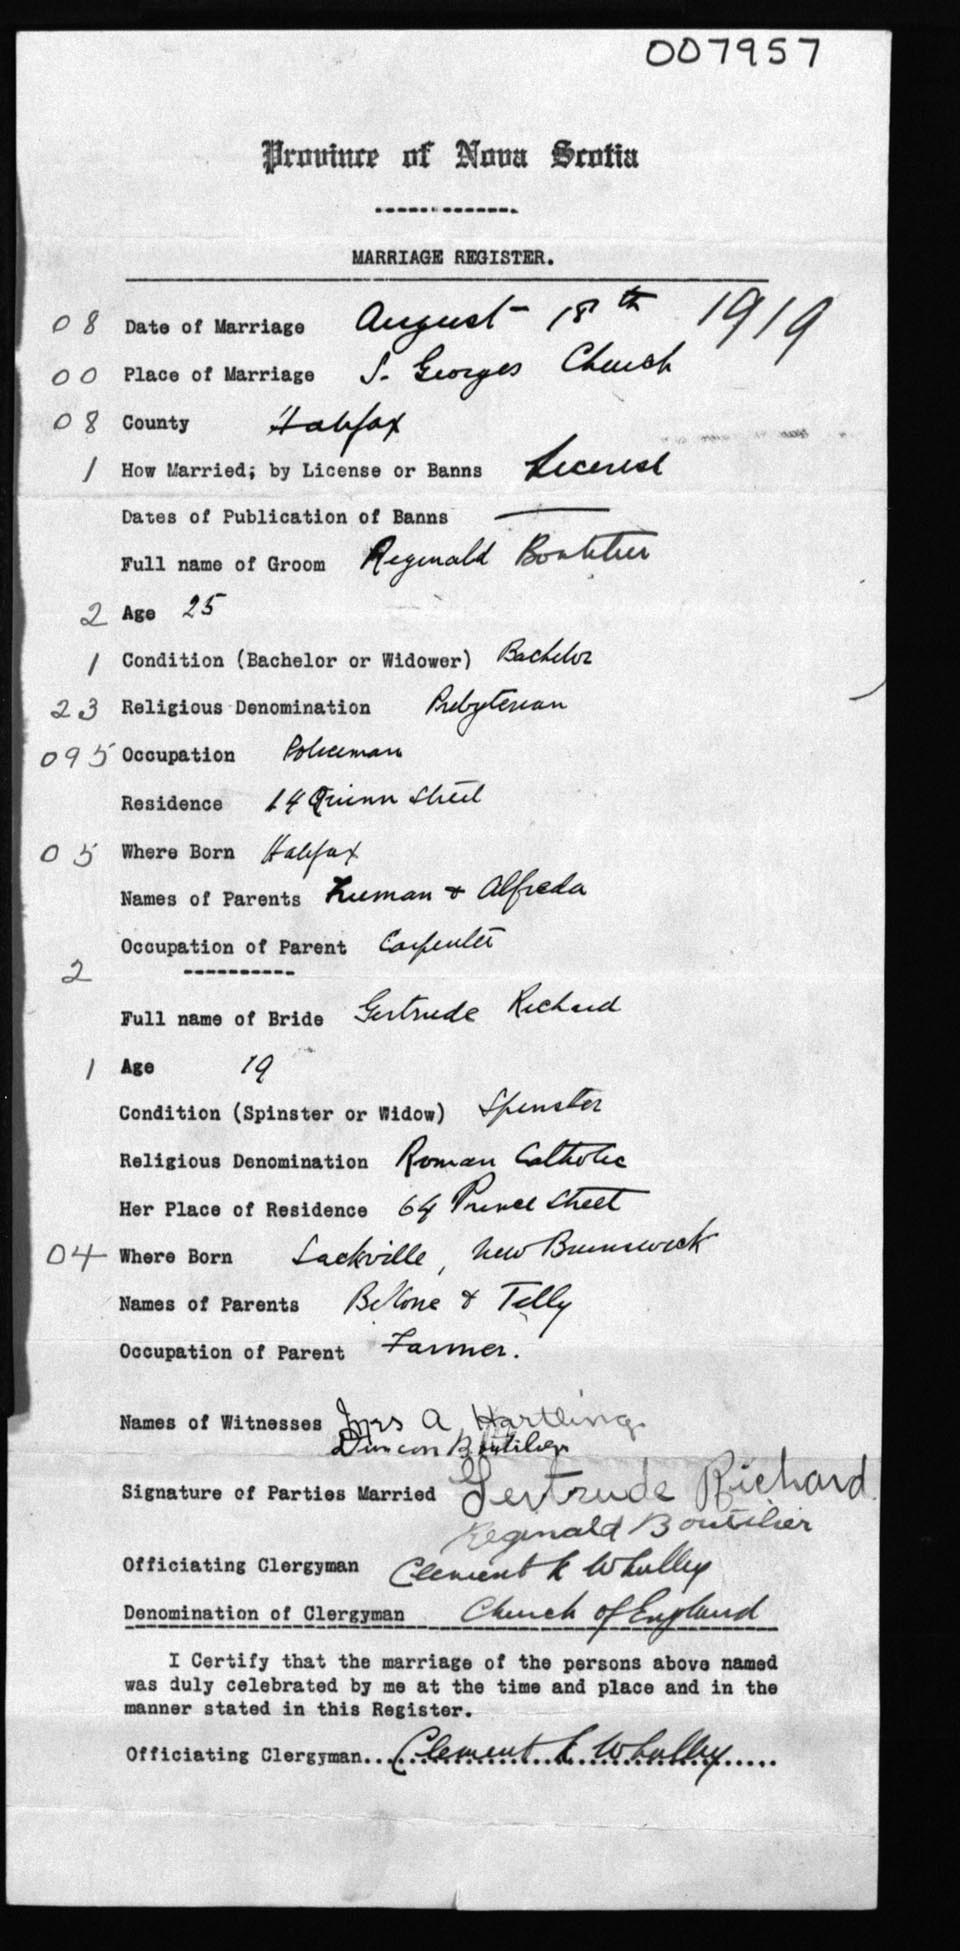 007957
Province of Nova Scotia
MARRIAGE REGISTER.
08 Date of Marriage August 18th 1919
00 Place of Marriage S. Georges Church
08 County Halifax
1 How Married; by License or Banns License
Dates of Publication of Banns —
Full name of Groom Reginald Boutilier
2 Age 25
1 Condition (Bachelor or Widower) Bachelor
23 Religious Denomination Prebyterian
095 Occupation Policeman
Residence 14 Quinn Street
05 Where Born Halifax
Names of Parents & Alfreda
Occupation of Parent Carpenter
2
Full name of Bride Gertrude Richard
1 Age 19
Condition (Spinster or Widow) Spinster
Religious Denomination Roman Catholic
Her Place of Residence 64 Prince Street
04 Where Born Sackville, New Brunswick
Names of Parents & Tilly
Occupation of Parent Farmer.
Names of Witnesses Mrs A Hartling.
Duncan Boutilier
Signature of Parties Married Gertrude Richard
Reginald Boutilier
Officiating Clergyman Clement Whalley
Denomination of Clergyman Church of England
I Certify that the marriage of the persons above named
was duly celebrated by me at the time and place and in the
manner stated in this Register.
Officiating Clergyman.... Clement Whalley.....